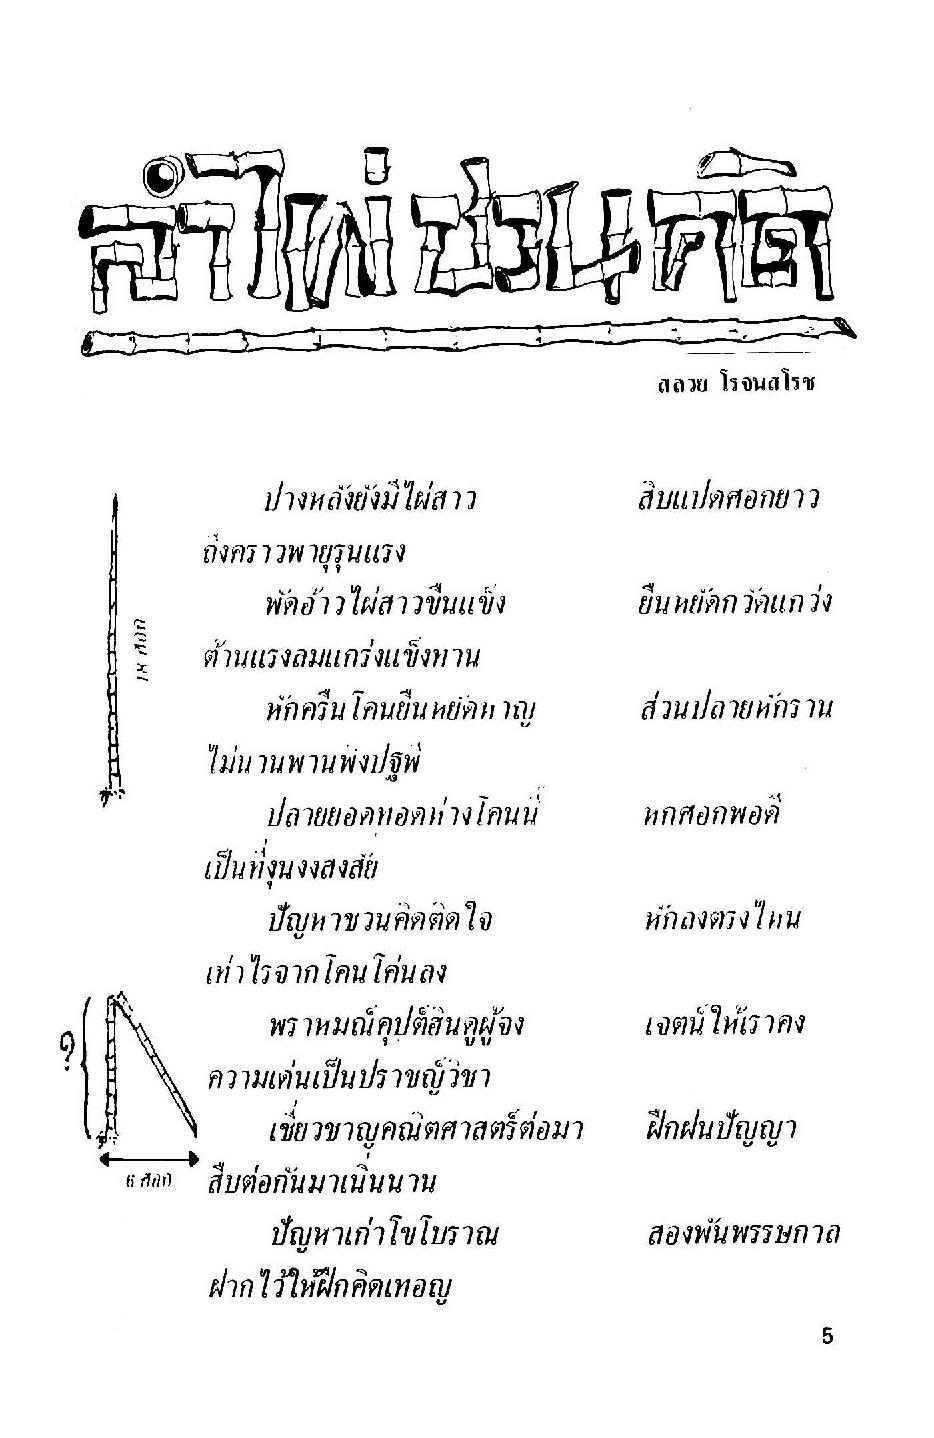 ลำไผ่ชวนคิด
สลวย โรจนสโรช
ปางหลังยังมีไผ่สาว สิบแปดศอกยาว
ถึงคราวพายุรุนแรง
พัดอ้าวไผ่สาวขืนแข็ง ยืนหยัดกวัดแกว่ง
ต้านแรงลมแกร่งแข็งทาน
18 ศอก
หักครืนโคนยืนหยัดหาญ ส่วนปลายหักราน
ไม่นานพานพังปฐพี
ปลายยอดทอดห่างโคนนี้ หกศอกพอดี
เป็นที่งุนงงสงสัย
ปัญหาชวนคิดติดใจ หักลงตรงไหน
เท่าไรจากโคนโค่นลง
พราหมณ์คุปต์ฮินดูผู้จง เจตน์ให้เราคง
ความเด่นเป็นปราชญ์วิชา
?
เชี่ยวชาญคณิตศาสตร์ต่อมา ฝึกฝนปัญญา
6 ศอก
สืบต่อกันมาเนิ่นนาน
ปัญหาเก่าโขโบราณ สองพันพรรษกาล
ฝากไว้ให้ฝึกคิดเทอญ
5